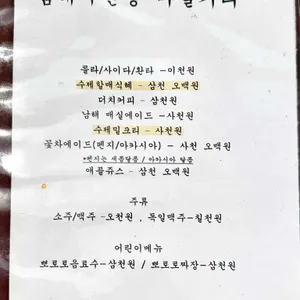 콜라/사이다/환타 -이천원
수제할매식혜 - 삼천 오백원
더치커피 - 삼천원
남해 매실에이드 -사천원
수제밀크티 - 사천원
꽃차에이드(팬지/아카시아) - 사천 오백원
*팬지는 새콤달콤 / 아카시아 달콤
애플쥬스 - 삼천 오백원
주류
소주/맥주 -오천원 , 독일맥주-칠천원
어린이메뉴
뽀로로음료수-삼천원 / 뽀로로짜장-삼천원